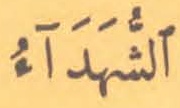 ٱلشُّهَدَآءُ